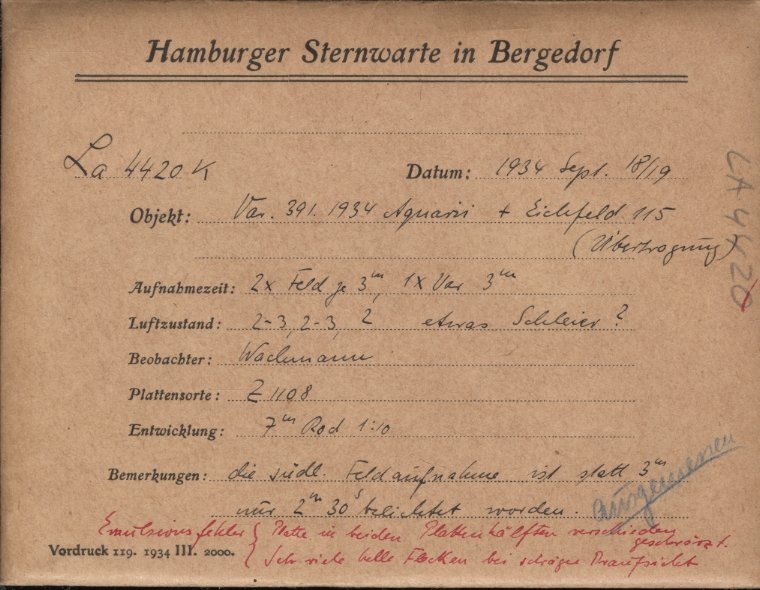 Hamburger Sternwarte in Bergedorf
La 4420 K Datum: 1934 Sept. 18/19
Objekt: Var. 391.1934 Aquarii + Eichfeld 115
(Übertragung)
Aufnahmezeit: 2x Feld je 3ᵐ, 1x Var 3ᵐ
Luftzustand: 2-3, 2-3, 2 etwas Schleier?
Beobachter: Wachmann
Plattensorte: Z 1108
Entwicklung: 7ᵐ Rod 1:10
Bemerkungen: die südl. Feldaufnahme ist statt 3ᵐ
nur 2ᵐ 30ˢ belichtet worden.
ausgemessen
Emulsionsfehler { Platte in beiden Plattenhälften verschieden geschwärzt.
Sehr viele helle Flecken bei schräger Draufsicht
Vordruck 119. 1934 III. 2000.
LA 4420